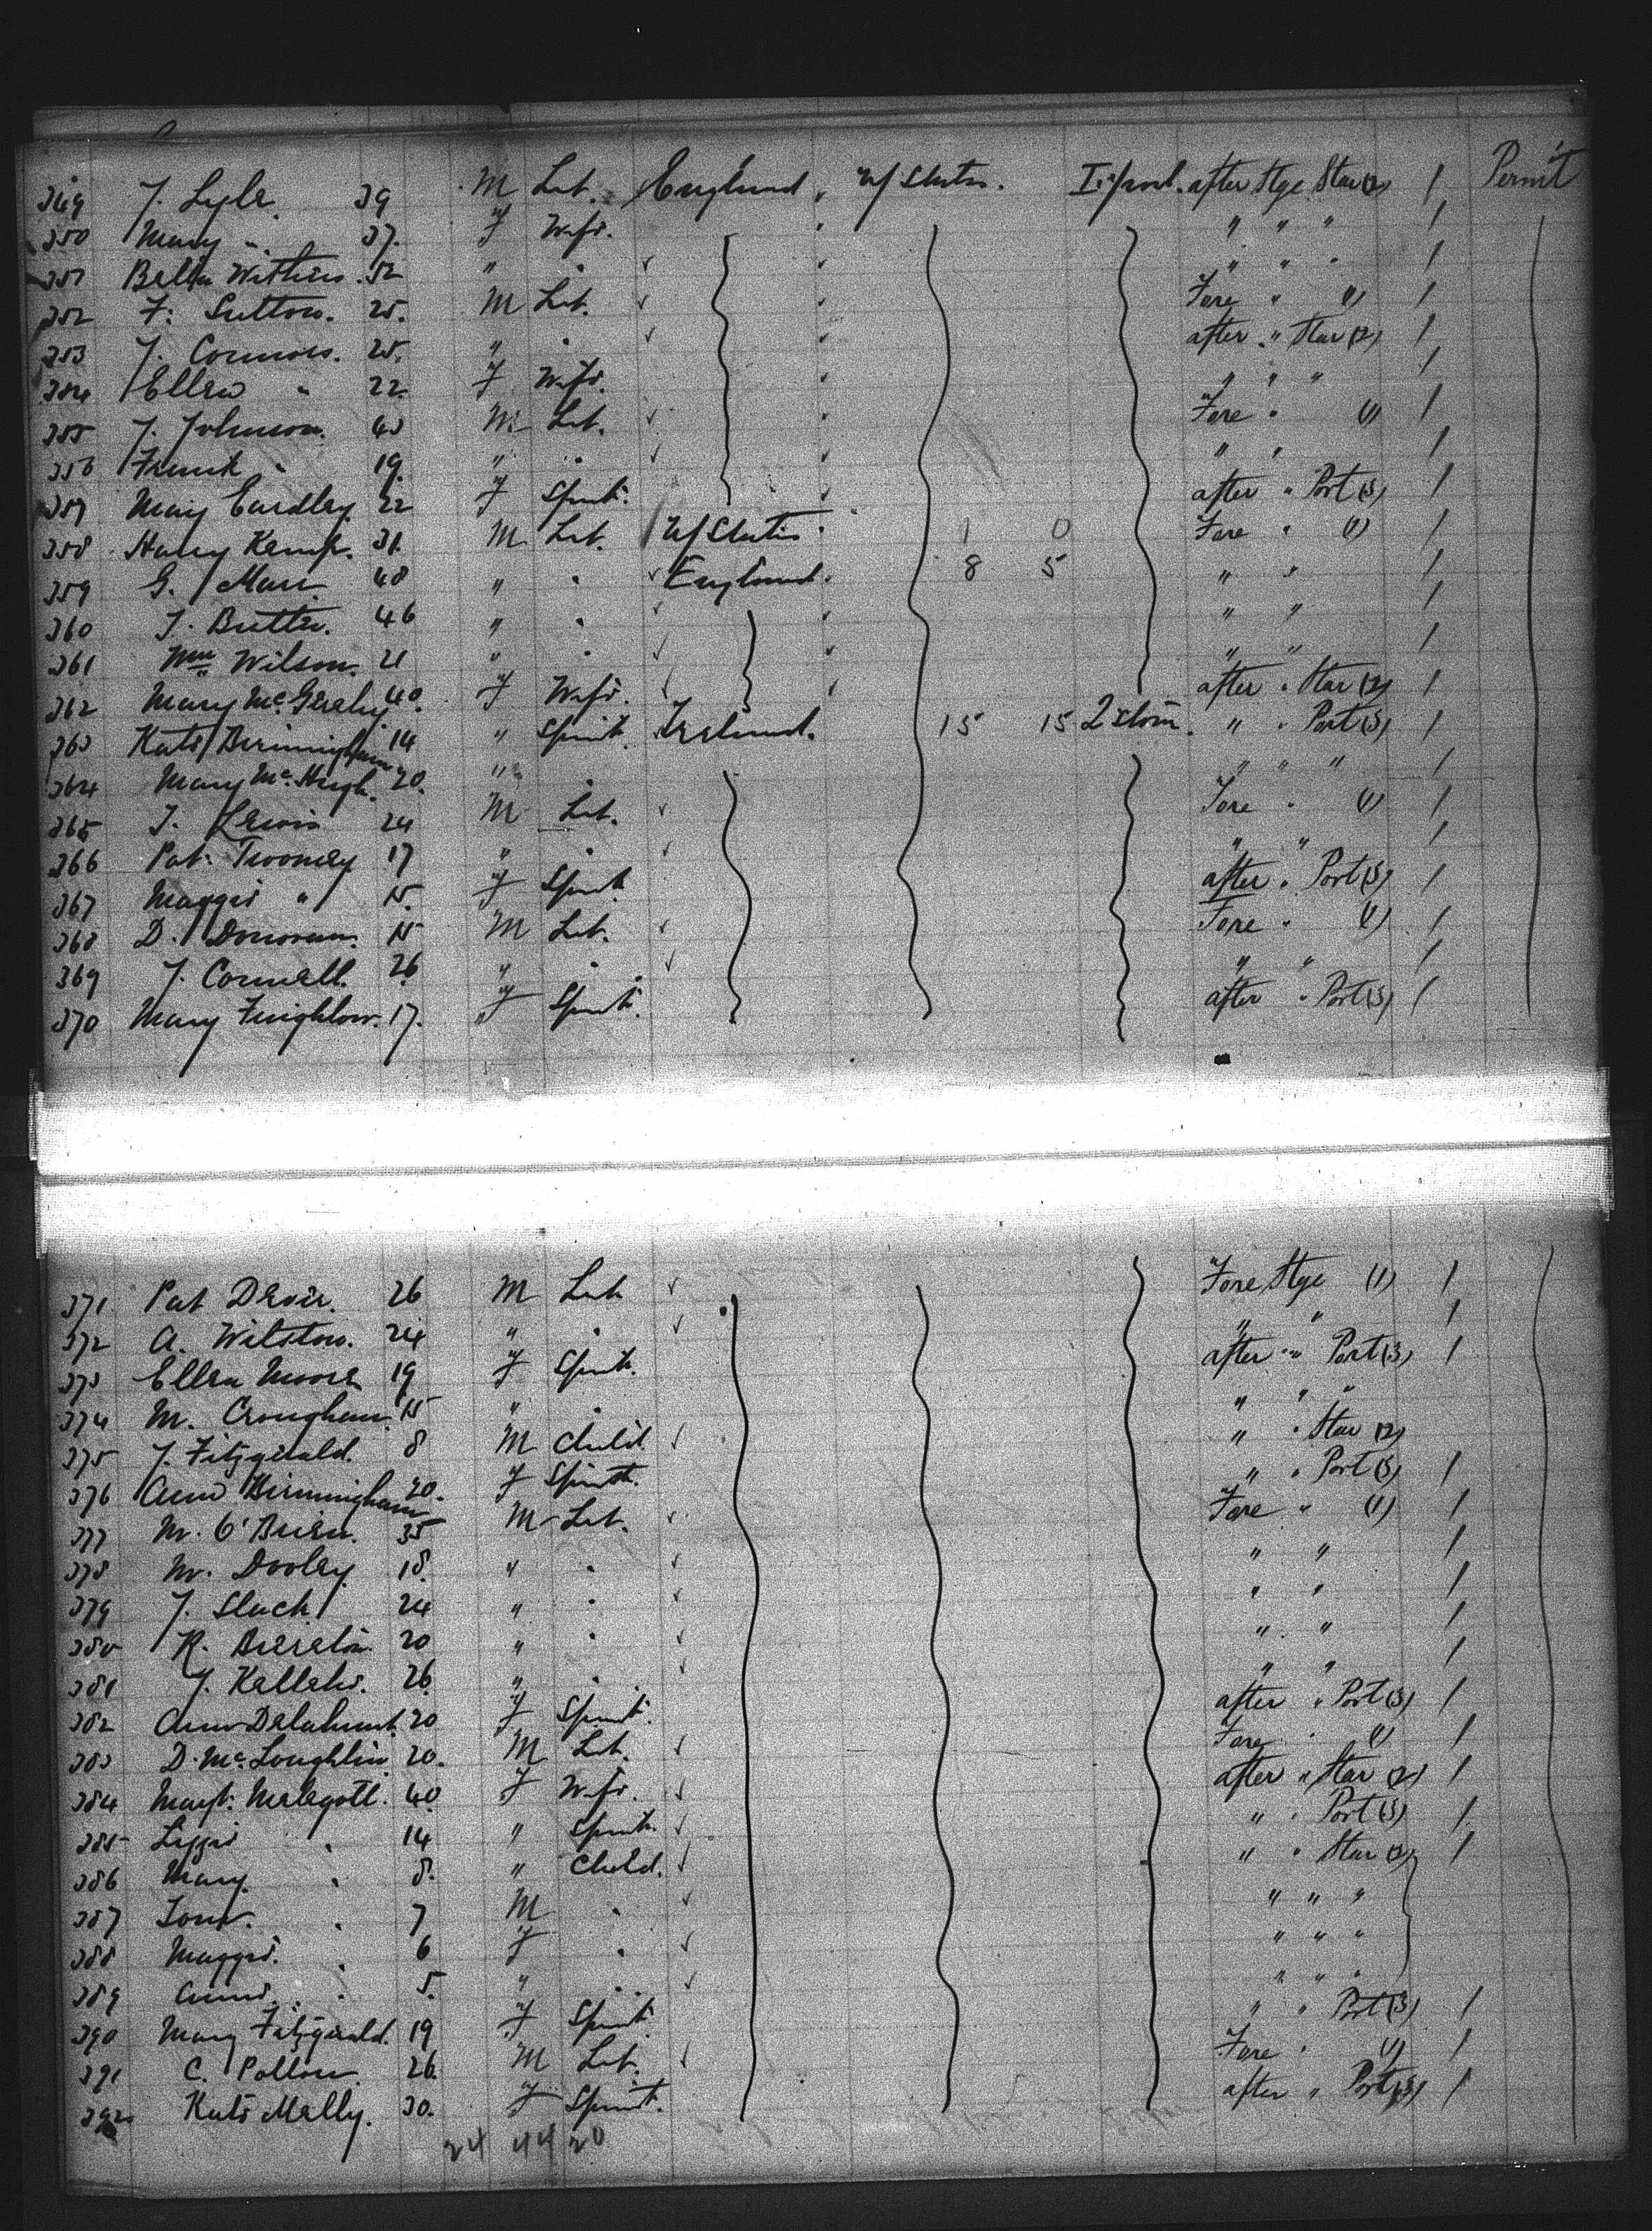 349 J. Lyle. 39 M Lab. England " U/States. L'pool. after Stge Star (2) / Permit
350 Mary " 37. f Wife. " " " " /
351 Bella Withers. 52 " " " " " /
352 F. Sutton. 25. M Lab. Fore " (1) /
353 J. Connors. 25. " " after " Star (2) /
354 Ellen " 22. f Wife. " " " /
355 J. Johnson. 40 M Lab. Fore " (1) /
356 Frank " 19. " " " " /
357 Mary Eardley. 22 f Spinst. after " Port (3) /
358 Harry Kemp. 31. M Lab. U/States 1 0 Fore " (1) /
359 G. Marr. 48 " " England. 8 5 " " /
360 J. Butter. 46 " " " " /
361 Wm Wilson. 21 " " " " /
362 Mary 40. f Wife. after " Star (2) /
363 Kate Birmingham 14 " Spinst. Ireland. 15 15 Q'stown. " " Port (3) /
364 Mary McHugh. 20. " " " " " /
365 J. Lewis 24 M Lab. Fore " (1) /
366 Pat. Twomey 17 " " " " /
367 Maggie " 15. f Spinst after " Port (3) /
368 D. Donovan. 15 M Lab. Fore " (1) /
369 J. Connell. 26. " " " " /
370 Mary 17. f Spinst. after " Port (3) /
371 Pat 26 M Lab Fore Stge (1) /
372 A. Wilston. 24 " " " " /
373 Ellen Moore 19 f Spinst. after " Port (3) /
374 M. Croughan 15 " " " " "
375 J. Fitzgerald. 8 M Child " " Star (2)
376 Anne Birmingham 20. f Spinst. " " Port (3) /
377 M. O'Brien. 35 M Lab. Fore " (1) /
378 M. Dooley. 18. " " " " /
379 J. Slack 24 " " " " /
380 R. Brereton. 20 " " " " /
381 J. Kelleher. 26. " " " " /
382 Ann Delahunt. 20 f Spinst. after " Port (3) /
383 D. McLoughlin. 20. M Lab. Fore " (1) /
384 Margt. 40. f Wife. after " Star (2) /
385 Lizzie " 14 " Spinst. " " Port (3) /
386 Mary. " 8. " Child. " " Star (2) /
387 " 7 M " " " "
388 Maggie. " 6 f " " " "
389 Annie. " 5. " " " " "
390 Mary Fitzgerald. 19 f Spinst. " " Port (3) /
391 C. 26. M Lab. Fore " (1) /
392 Kate Melly. 30. f Spinst. after " Port (3) /
24 44 20